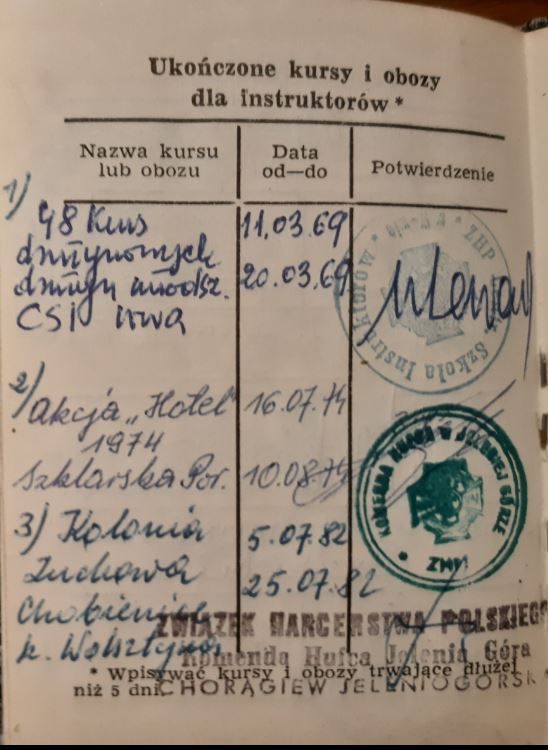 Ukończone kursy i obozy
dla instruktorów *
Nazwa kursu
lub obozu
Data
od—do
Potwierdzenie
1) 48 Kurs 11.03.69
drużynowych
drużyn młodsz. 20.03.69
CSI
Szkoła Instruktorów * ZHP
2) Akcja „Hotel" 16.07.74
1974
Szklarska Por. 10.08.74
KOMENDA HUFCA W JELENIEJ GÓRZE
3) Kolonia 5.07.82
Zuchowa 25.07.82
Chobienice
k. Wolsztyna
ZWIĄZEK HARCERSTWA POLSKIEGO
Komenda Hufca Jelenia Góra
* Wpisywać kursy i obozy trwające dłużej
niż 5 dni.
CHORĄGIEW JELENIOGÓRSKA